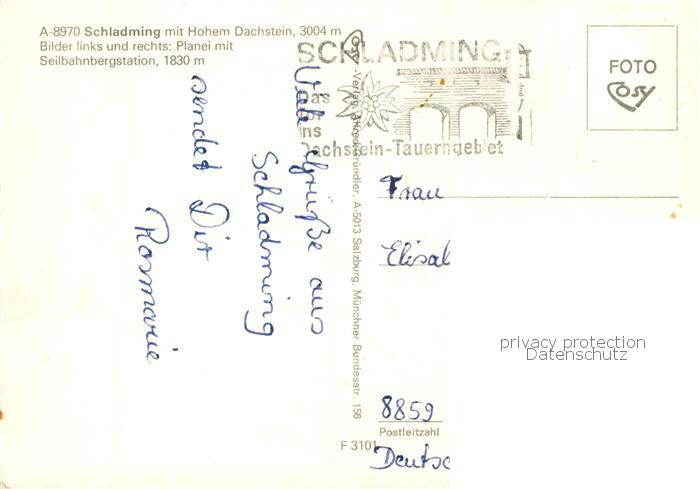 A-8970 Schladming mit Hohem Dachstein, 3004 m
Bilder links und rechts: Planei mit
Seilbahnbergstation, 1830 m
SCHLADMING
Das
Tor
ins
Dachstein-Tauerngebiet
FOTO
Cosy
Viele Grüße aus
Schladming
sendet Dir
Rosmarie
Cosy-Verlag, Alfred Gründler, A-5013 Salzburg, Münchner Bundesstr. 156
Frau
Elisab
privacy protection
Datenschutz
8859
Postleitzahl
F 3101
Deutsc